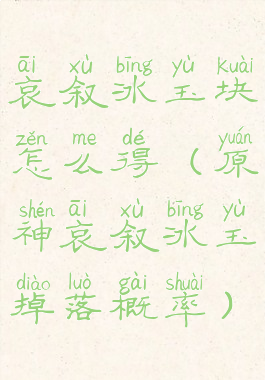 āi xù bīng yù kuài
哀叙冰玉块
zěn me dé yuán
怎么得（原
shén āi xù bīng yù
神哀叙冰玉
diào luò gài shuài
掉落概率）